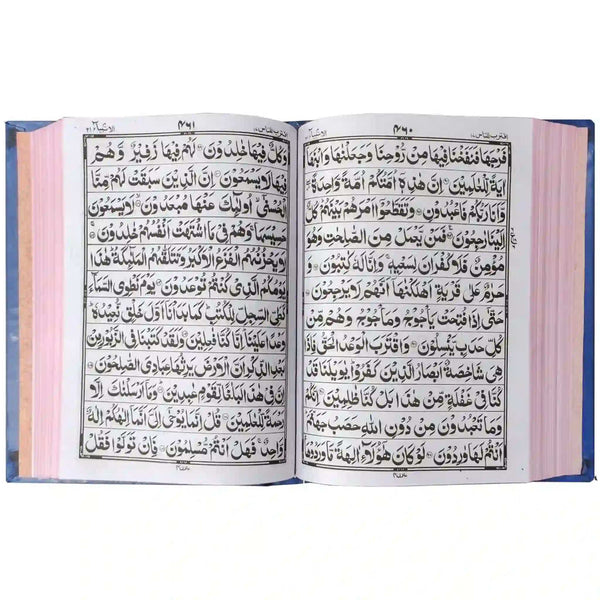 اقترب للناس ١٧ ۴۶۰ الانبیاء ٢١
فَرْجَهَا فَنَفَخْنَا فِيْهَا مِنْ رُّوْحِنَا وَجَعَلْنٰهَا وَابْنَهَاۤ
اٰيَةً لِّلْعٰلَمِيْنَ ۝ اِنَّ هٰذِهٖۤ اُمَّتُكُمْ اُمَّةً وَّاحِدَةً
وَّاَنَا رَبُّكُمْ فَاعْبُدُوْنِ ۝ وَتَقَطَّعُوْۤا اَمْرَهُمْ بَيْنَهُمْ كُلٌّ
اِلَيْنَا رٰجِعُوْنَ ۝ فَمَنْ يَّعْمَلْ مِنَ الصّٰلِحٰتِ وَهُوَ
مُؤْمِنٌ فَلَا كُفْرَانَ لِسَعْيِهٖ وَاِنَّا لَهٗ كٰتِبُوْنَ ۝ وَ
حَرٰمٌ عَلٰى قَرْيَةٍ اَهْلَكْنٰهَاۤ اَنَّهُمْ لَا يَرْجِعُوْنَ ۝
حَتّٰۤى اِذَا فُتِحَتْ يَاْجُوْجُ وَمَاْجُوْجُ وَهُمْ مِّنْ
كُلِّ حَدَبٍ يَّنْسِلُوْنَ ۝ وَاقْتَرَبَ الْوَعْدُ الْحَقُّ فَاِذَا
هِيَ شَاخِصَةٌ اَبْصَارُ الَّذِيْنَ كَفَرُوْا يٰوَيْلَنَا قَدْ
كُنَّا فِيْ غَفْلَةٍ مِّنْ هٰذَا بَلْ كُنَّا ظٰلِمِيْنَ ۝ اِنَّكُمْ
وَمَا تَعْبُدُوْنَ مِنْ دُوْنِ اللّٰهِ حَصَبُ جَهَنَّمَ
اَنْتُمْ لَهَا وٰرِدُوْنَ ۝ لَوْ كَانَ هٰۤؤُلَآءِ اٰلِهَةً مَّا وَرَدُوْهَا
الانبیاء ٢١ ۴۶۱ اقترب للناس ١٧
وَكُلٌّ فِيْهَا خٰلِدُوْنَ ۝ لَهُمْ فِيْهَا زَفِيْرٌ وَّهُمْ
فِيْهَا لَا يَسْمَعُوْنَ ۝ اِنَّ الَّذِيْنَ سَبَقَتْ لَهُمْ مِّنَّا
الْحُسْنٰۤى اُولٰٓئِكَ عَنْهَا مُبْعَدُوْنَ ۝ لَا يَسْمَعُوْنَ
حَسِيْسَهَا وَهُمْ فِيْ مَا اشْتَهَتْ اَنْفُسُهُمْ خٰلِدُوْنَ ۝
لَا يَحْزُنُهُمُ الْفَزَعُ الْاَكْبَرُ وَتَتَلَقّٰهُمُ الْمَلٰٓئِكَةُ هٰذَا
يَوْمُكُمُ الَّذِيْ كُنْتُمْ تُوْعَدُوْنَ ۝ يَوْمَ نَطْوِي السَّمَآءَ
كَطَيِّ السِّجِلِّ لِلْكُتُبِ كَمَا بَدَاْنَاۤ اَوَّلَ خَلْقٍ نُّعِيْدُهٗ
وَعْدًا عَلَيْنَا اِنَّا كُنَّا فٰعِلِيْنَ ۝ وَلَقَدْ كَتَبْنَا فِي الزَّبُوْرِ مِنْ
بَعْدِ الذِّكْرِ اَنَّ الْاَرْضَ يَرِثُهَا عِبَادِيَ الصّٰلِحُوْنَ ۝
اِنَّ فِيْ هٰذَا لَبَلٰغًا لِّقَوْمٍ عٰبِدِيْنَ ۝ وَمَاۤ اَرْسَلْنٰكَ اِلَّا
رَحْمَةً لِّلْعٰلَمِيْنَ ۝ قُلْ اِنَّمَا يُوْحٰۤى اِلَيَّ اَنَّمَاۤ اِلٰهُكُمْ اِلٰهٌ
وَّاحِدٌ فَهَلْ اَنْتُمْ مُّسْلِمُوْنَ ۝ فَاِنْ تَوَلَّوْا فَقُلْ